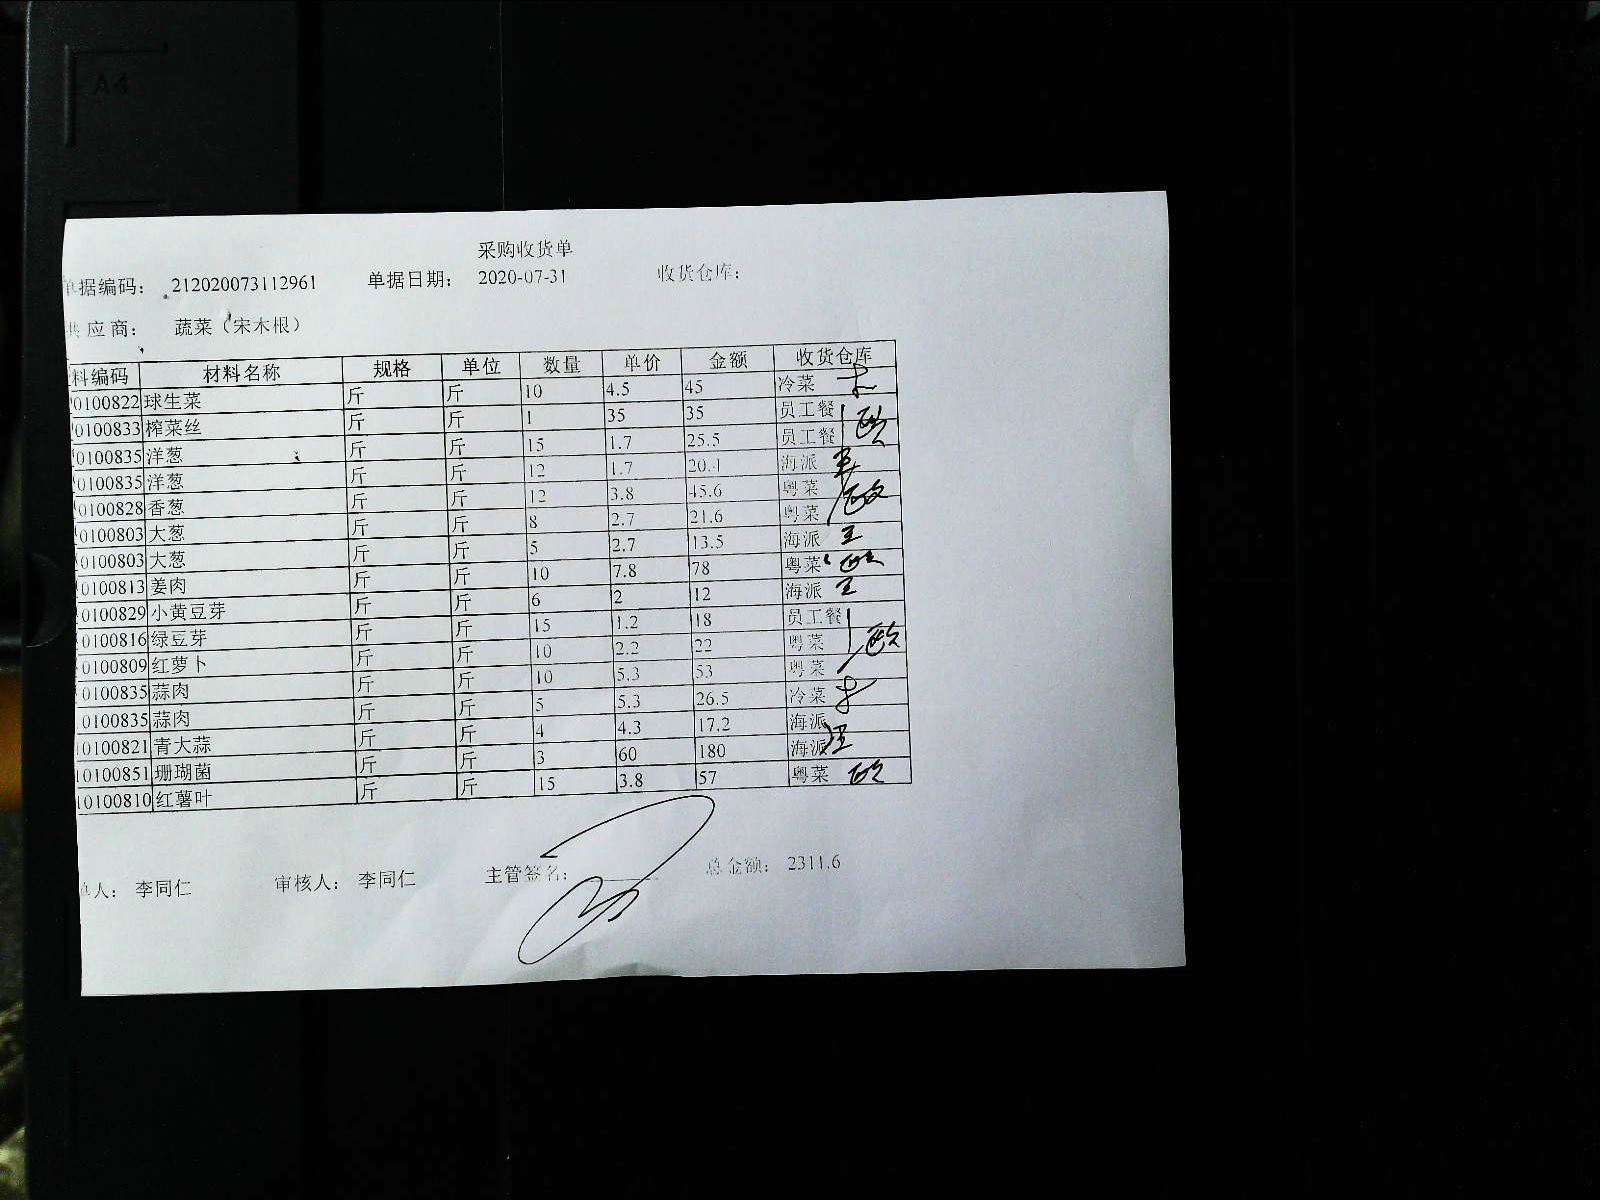 A4
采购收货单
单据编码： 212020073112961 单据日期： 2020-07-31 收货仓库：
供应商： 蔬菜（宋木根）
料编码 材料名称 规格 单位 数量 单价 金额 收货仓库
0100822 球生菜 斤 斤 10 4.5 45 冷菜
0100833 榨菜丝 斤 斤 1 35 35 员工餐
0100835 洋葱 斤 斤 15 1.7 25.5 员工餐
0100835 洋葱 斤 斤 12 1.7 20.4 海派
0100828 香葱 斤 斤 12 3.8 45.6 粤菜
0100803 大葱 斤 斤 8 2.7 21.6 粤菜
0100803 大葱 斤 斤 5 2.7 13.5 海派 王
0100813 姜肉 斤 斤 10 7.8 78 粤菜
0100829 小黄豆芽 斤 斤 6 2 12 海派 王
0100816 绿豆芽 斤 斤 15 1.2 18 员工餐
0100809 红萝卜 斤 斤 10 2.2 22 粤菜
0100835 蒜肉 斤 斤 10 5.3 53 粤菜
0100835 蒜肉 斤 斤 5 5.3 26.5 冷菜
10100821 青大蒜 斤 斤 4 4.3 17.2 海派
10100851 珊瑚菌 斤 斤 3 60 180 海派 王
10100810 红薯叶 斤 斤 15 3.8 57 粤菜
单人： 李同仁 审核人： 李同仁 主管签名： 总金额： 2311.6